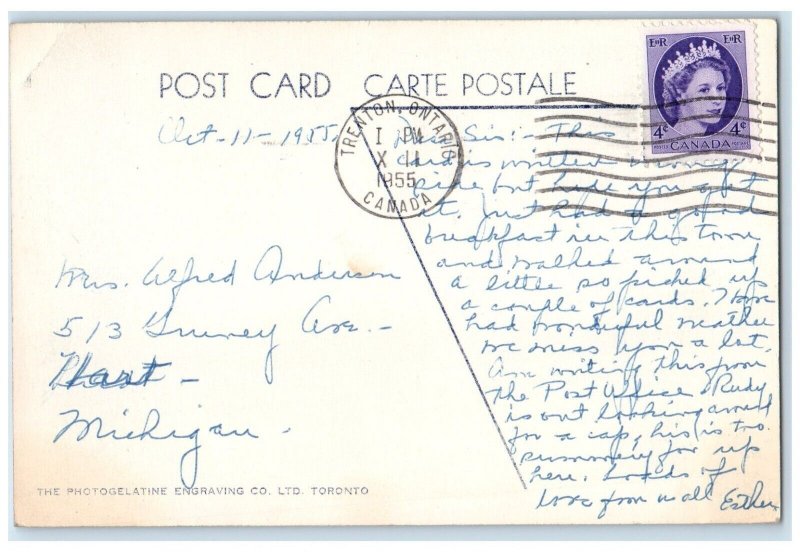 POST CARD CARTE POSTALE
EIIR EIIR
4¢ 4¢
POSTES CANADA POSTAGE
TRENTON, ONTARIO
1 PM
X 11
1955
CANADA
Oct-11-1955
Dear Sis:- This
card is written wrong
side but hope you get
it. Just had a good
breakfast in this town
and walked around
a little so picked up
a couple of cards. Have
had wonderful weather
we miss you a lot.
Am writing this from
the Post Office. Rudy
is out looking around
for a cap, his is too
summery for up
here. Loads of
love from us all Esther
Mrs. Alfred Anderson
513 Gurney Ave. -
Hart -
Michigan.
THE PHOTOGELATINE ENGRAVING CO. LTD. TORONTO